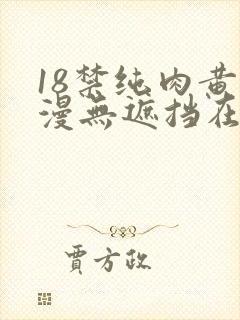 18禁纯肉黄
漫無遮挡在
贾方政